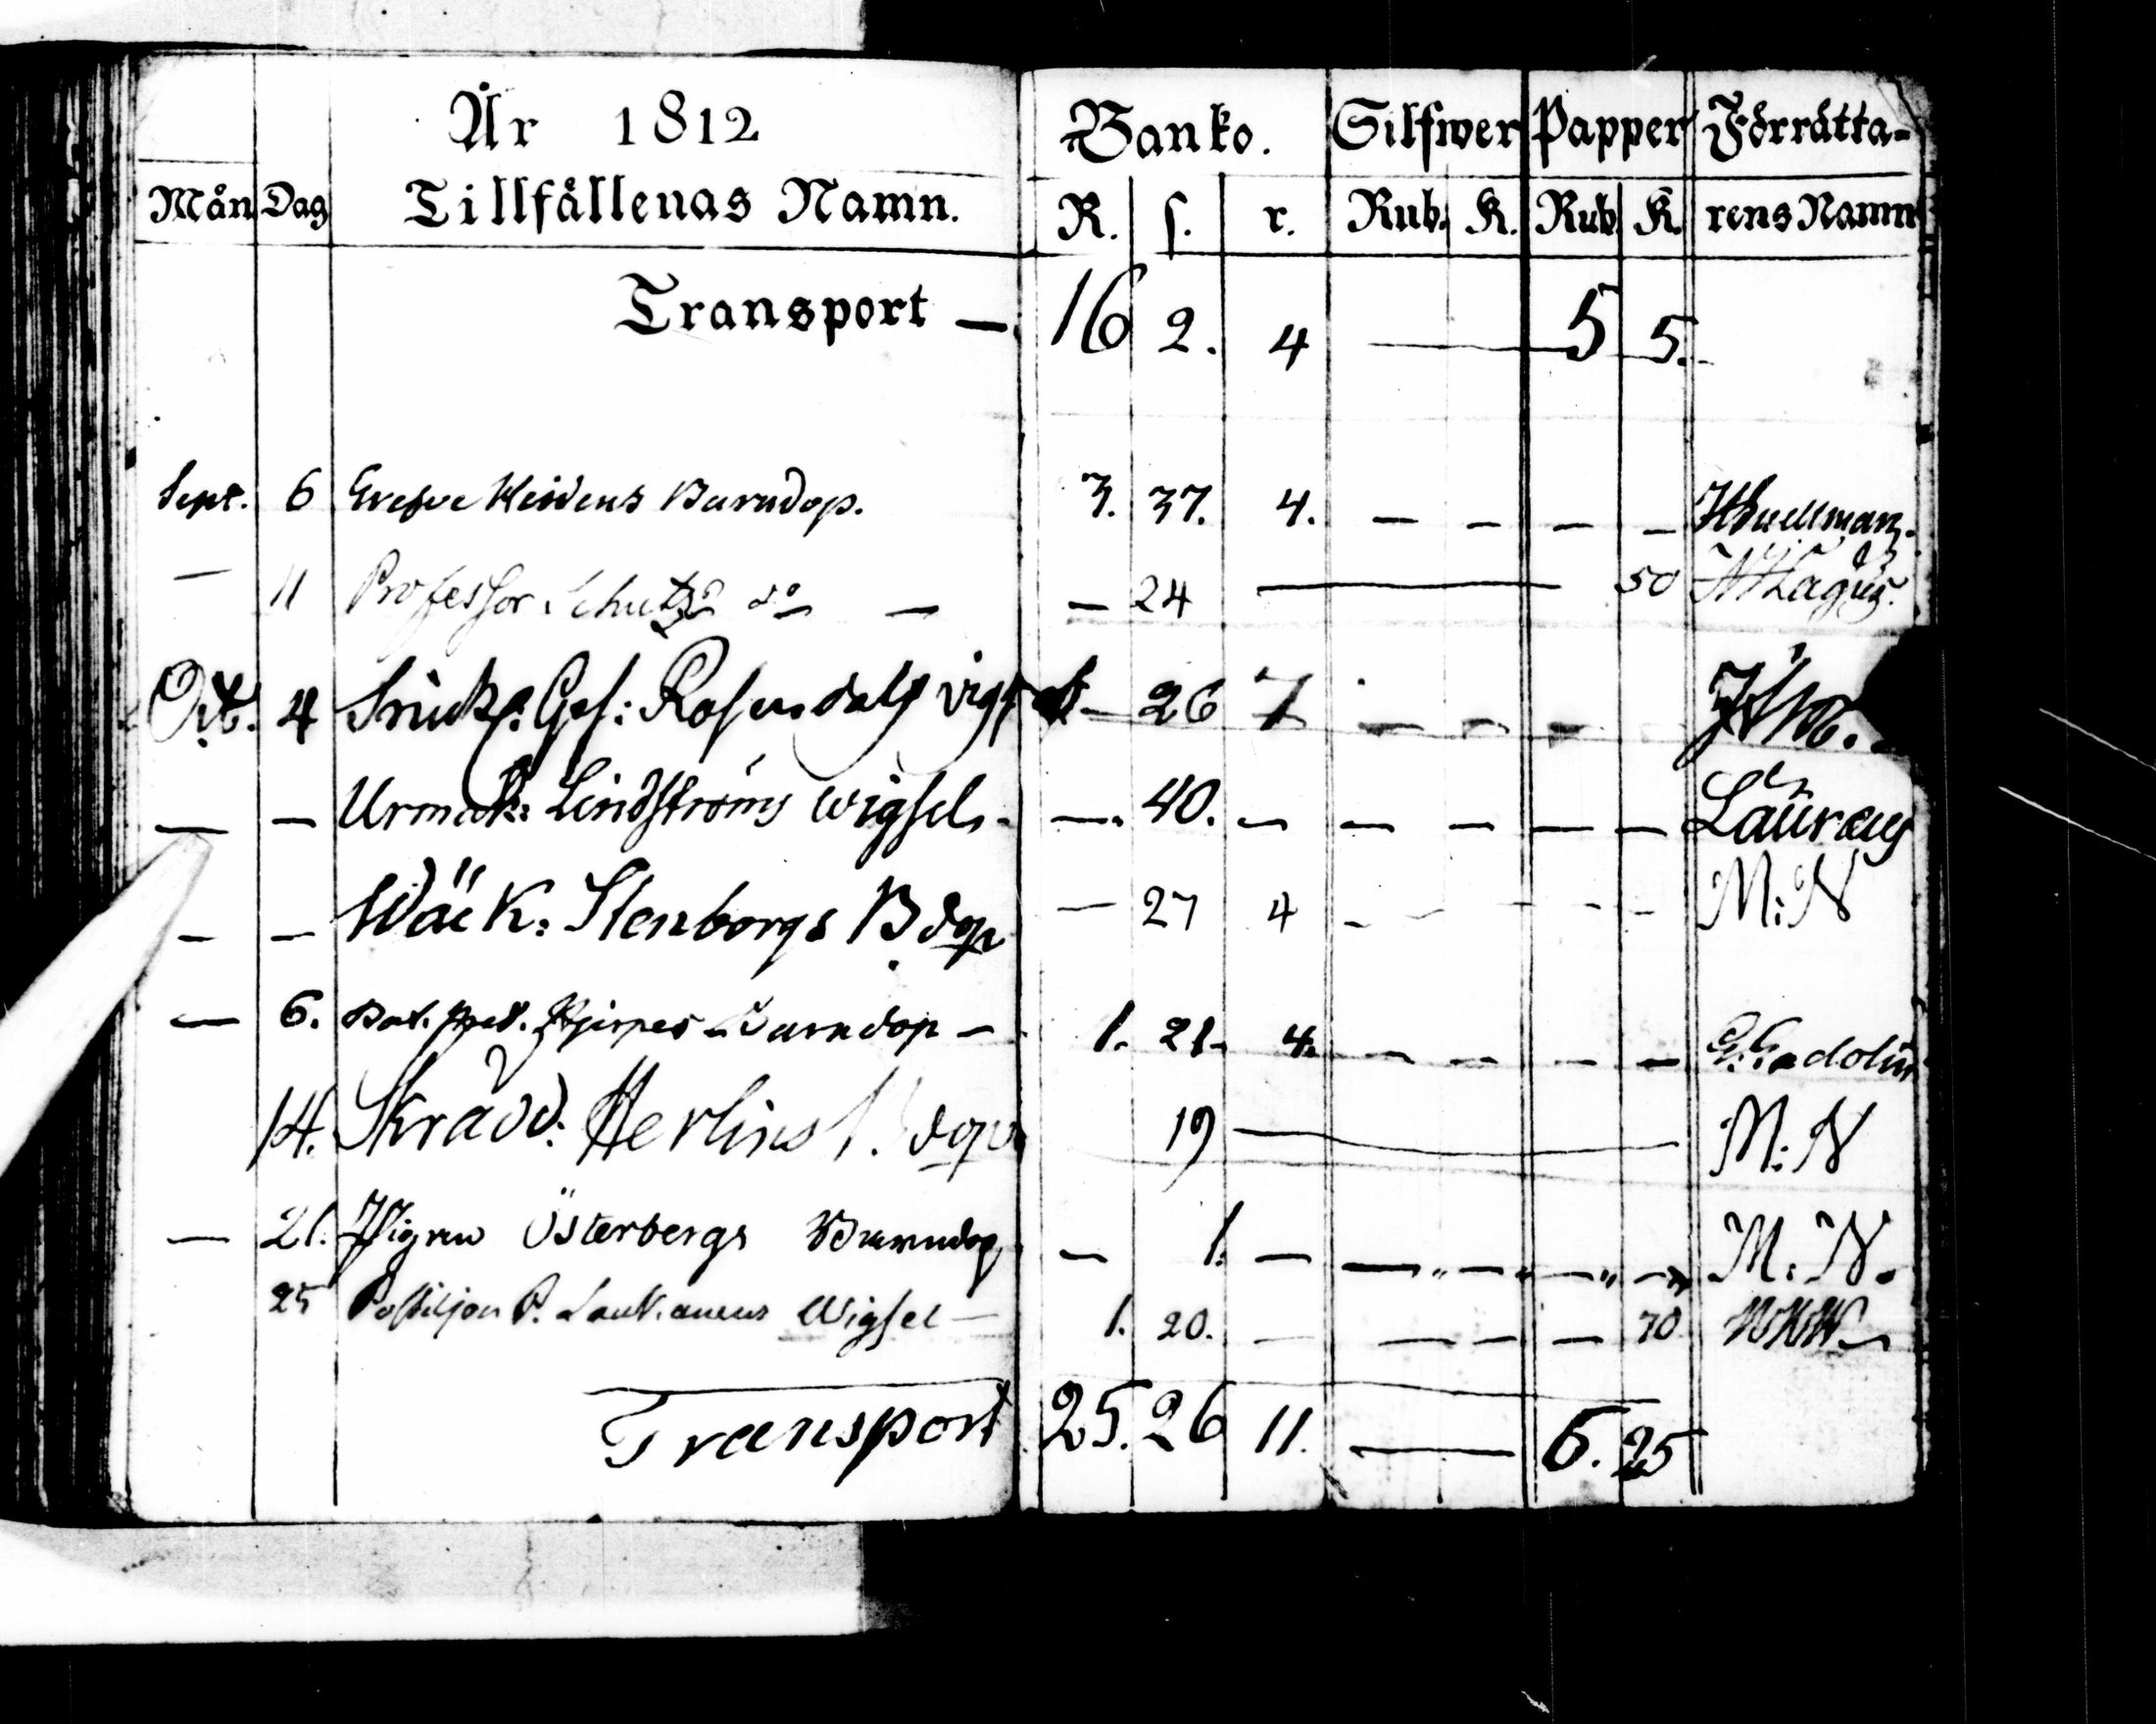 År 1812 Banko. Silfwer Papper Förrätta-
Mån Dag Tillfällenas Namn. R. s. r. Rub. K. Rub. K. rens Namn
Transport — 16 2. 4 — 5 5.
Sept. 6 Grefve Heidens Barndop. 3. 37. 4. — — — —
— 11 Professor Schutz do — — 24 — 50 Lagus.
Oct. 4 Ges: Rosendals vigs — 26 7 — — —
— — Urmak: Lindströms Wigsel. —. 40. — — — — — Lauræus
— — Stenborgs B dop — 27 4 - - - - M: N
— 6. Barndop — 1. 21. 4. — — — — G. Gadolin
14. Skradd: Herlins B. dop 19 — M: N
— 21. Österbergs Barndop — 1. — — „ — „ — „ — M. N.
25 Postiljon P. Laukanens Wigsel — 1. 20. — — — — 70
Transport 25. 26 11. — 6. 25